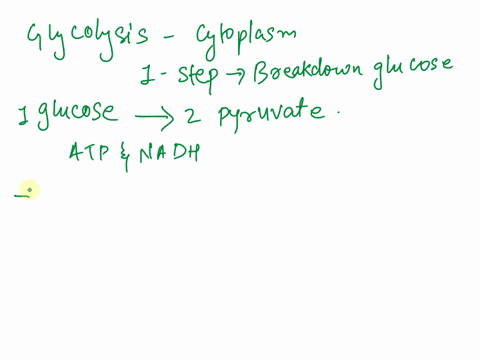 Glycolysis - Cytoplasm
1 - Step → Breakdown glucose
1 glucose → 2 pyruvate.
ATP & NADH